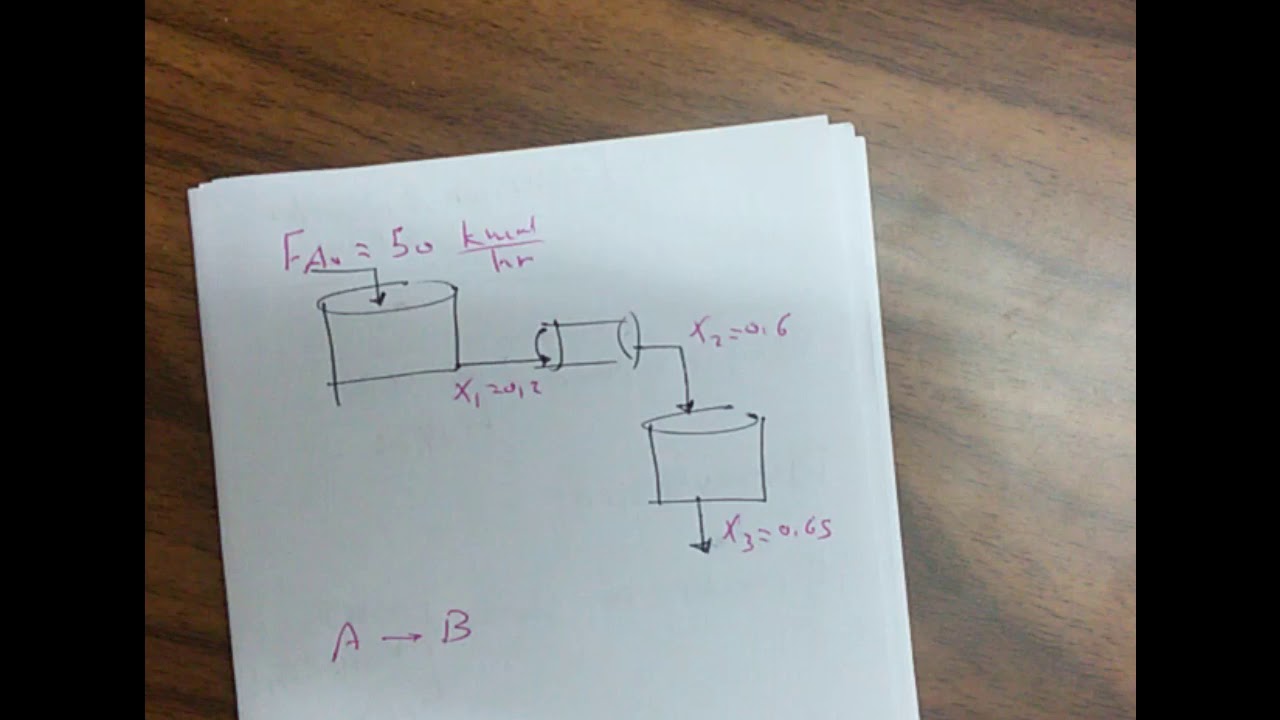 FA₀ = 50 kmol/hr
X₁=0,2
X₂=0.6
X₃=0.65
A → B